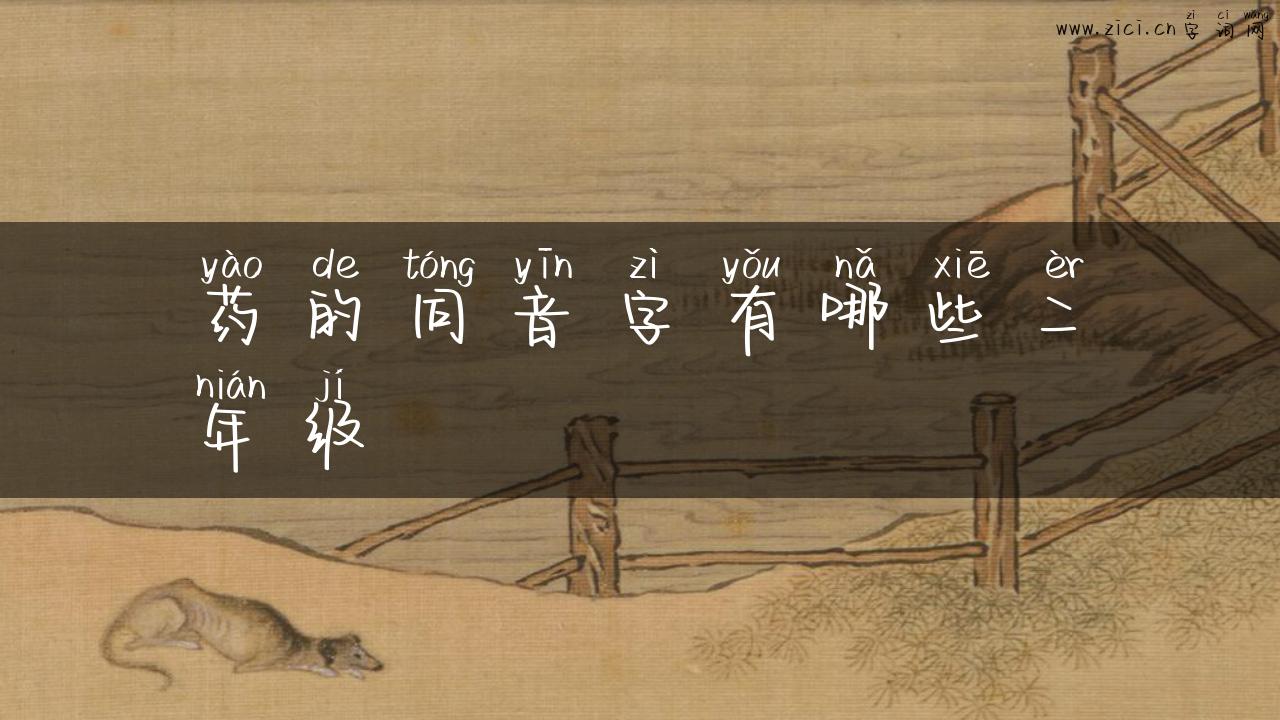 zì cí wǎng
www.zici.cn 字词网
yào de tóng yīn zì yǒu nǎ xiē èr
药的同音字有哪些二
nián jí
年级